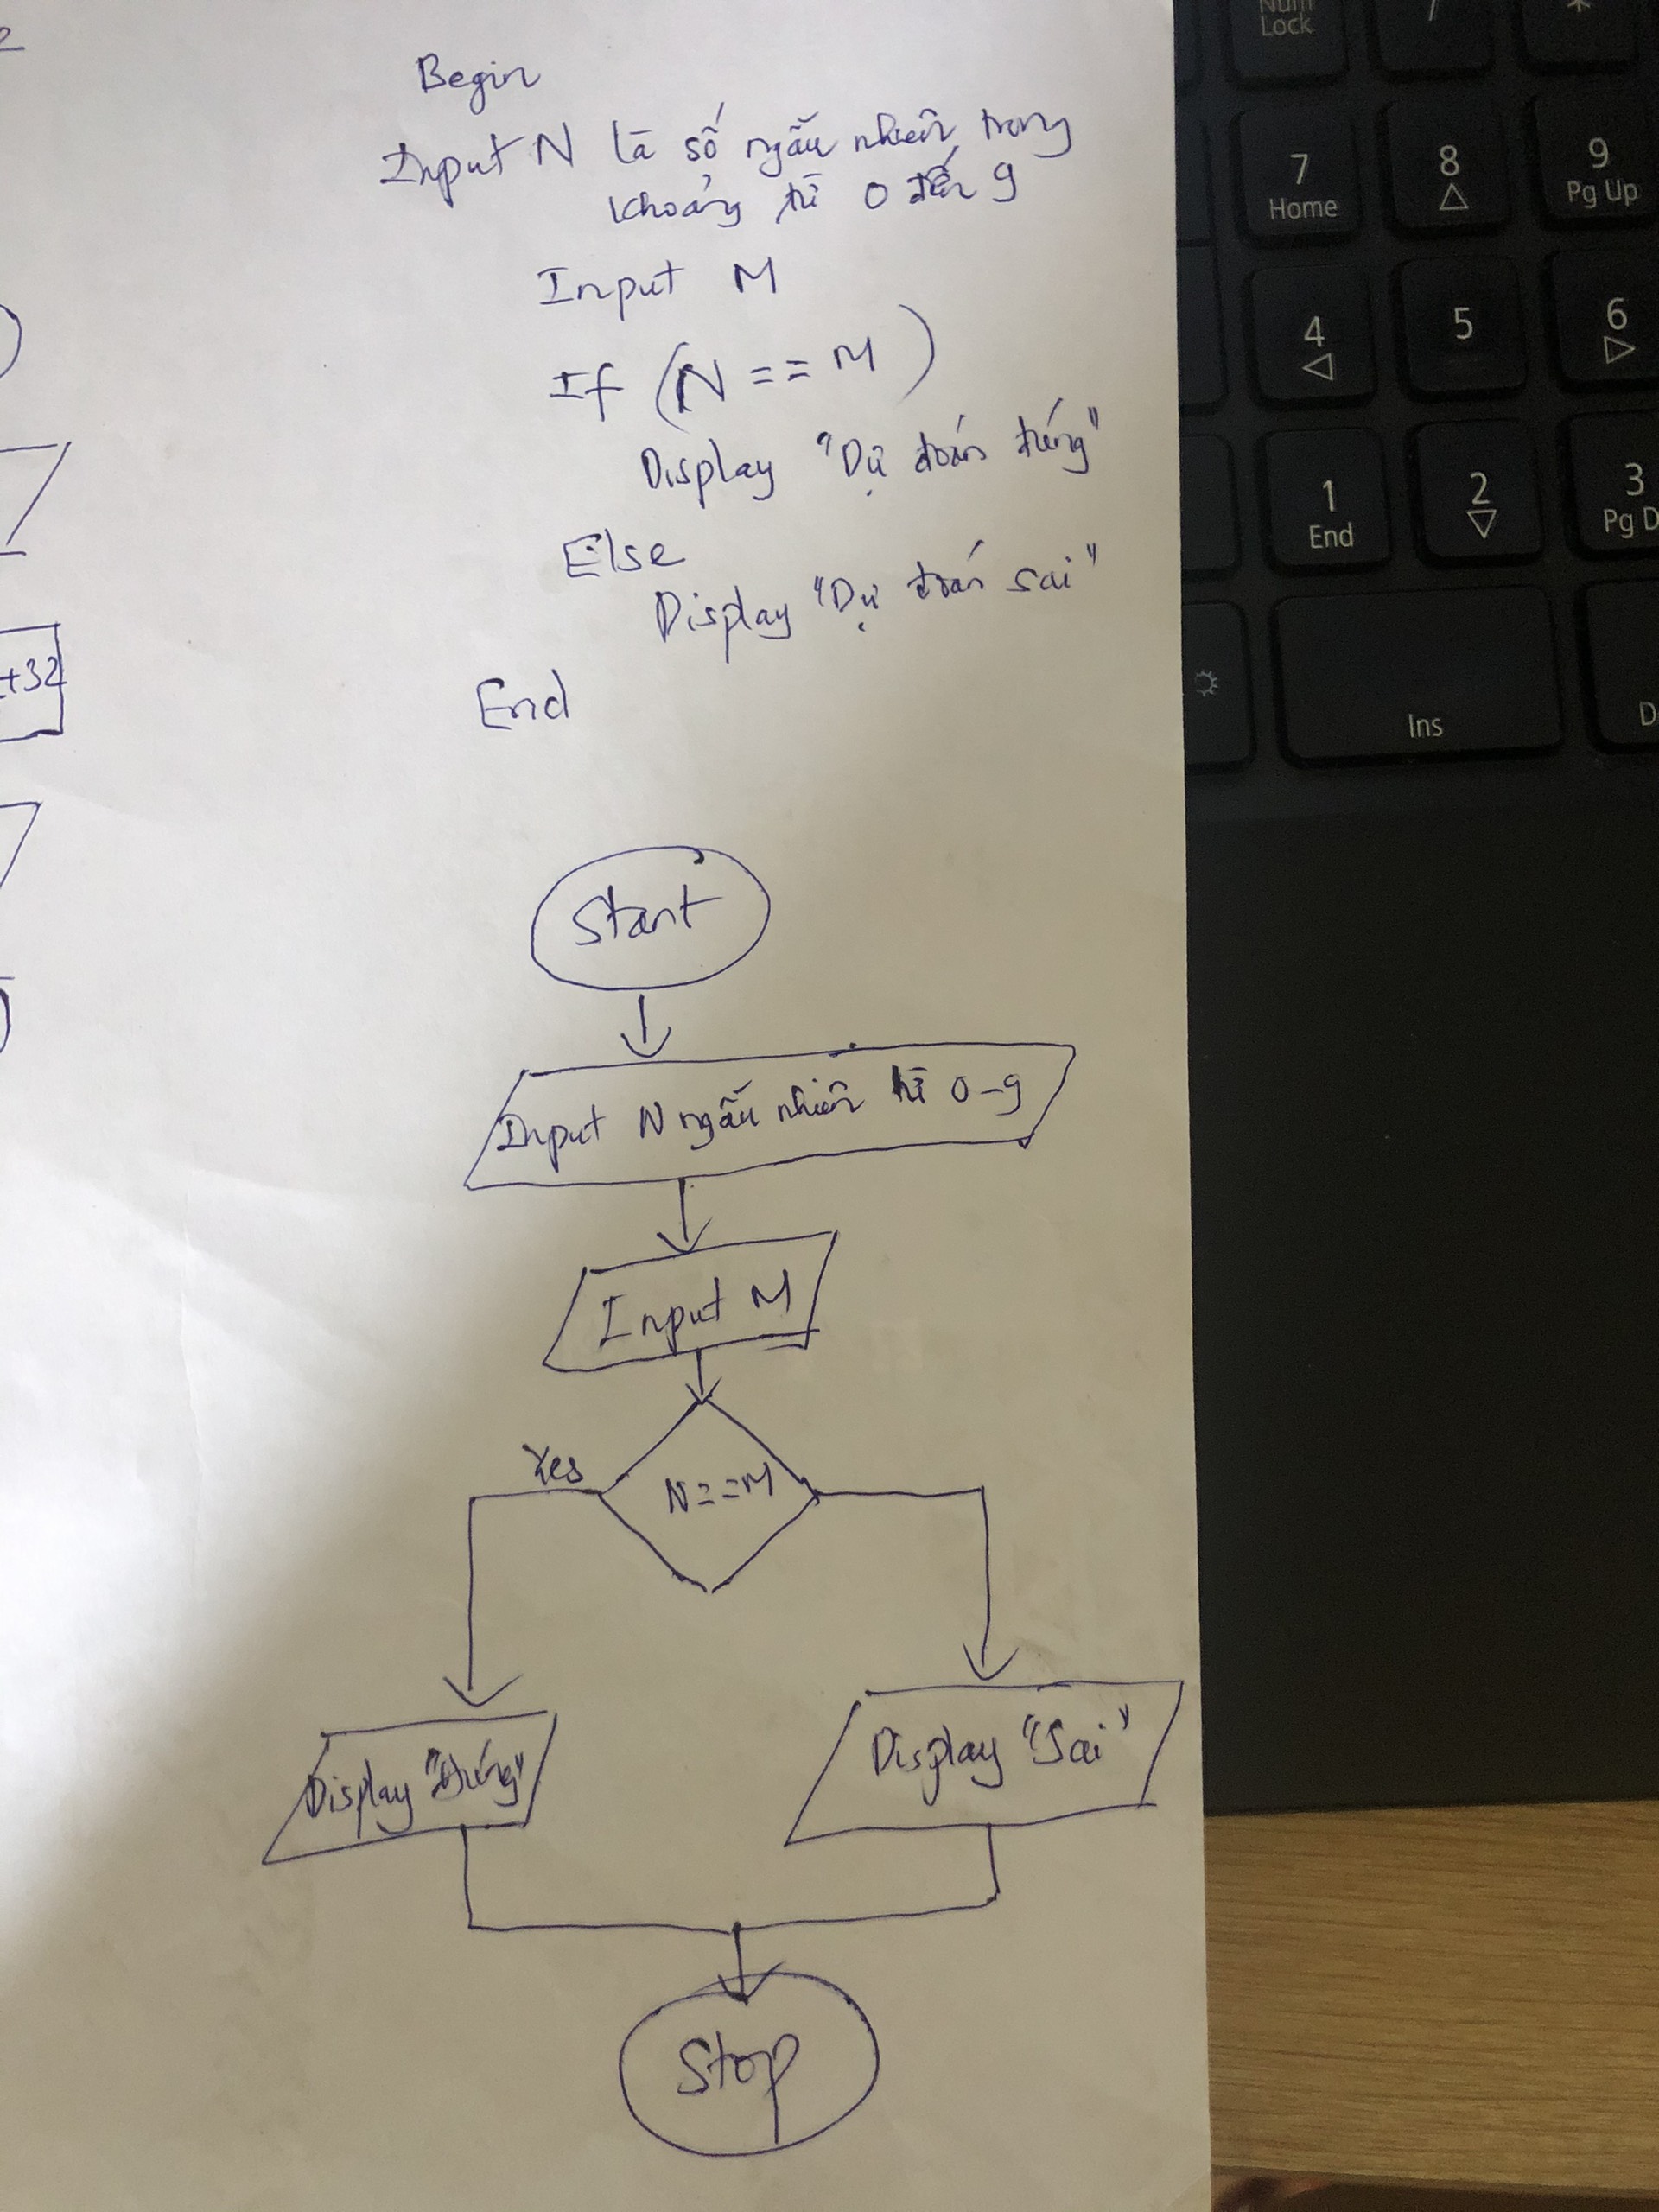 Begin
Input N là số ngẫu nhiên trong
khoảng từ 0 đến 9
Input M
If (N == M)
Display "Dự đoán đúng"
Else
Display "Dự đoán sai"
End
+32
Start
Input N ngẫu nhiên từ 0-9
Input M
Yes
N==M
Display "đúng"
Display "Sai"
Stop
Num
Lock
/
*
7
Home
8
9
Pg Up
4
5
6
1
End
2
3
Pg D
Ins
D